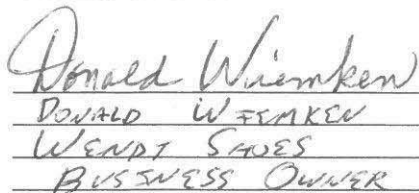 Donald Wiemken
DONALD WIEMKEN
WENDT SHOES
BUSINESS OWNER